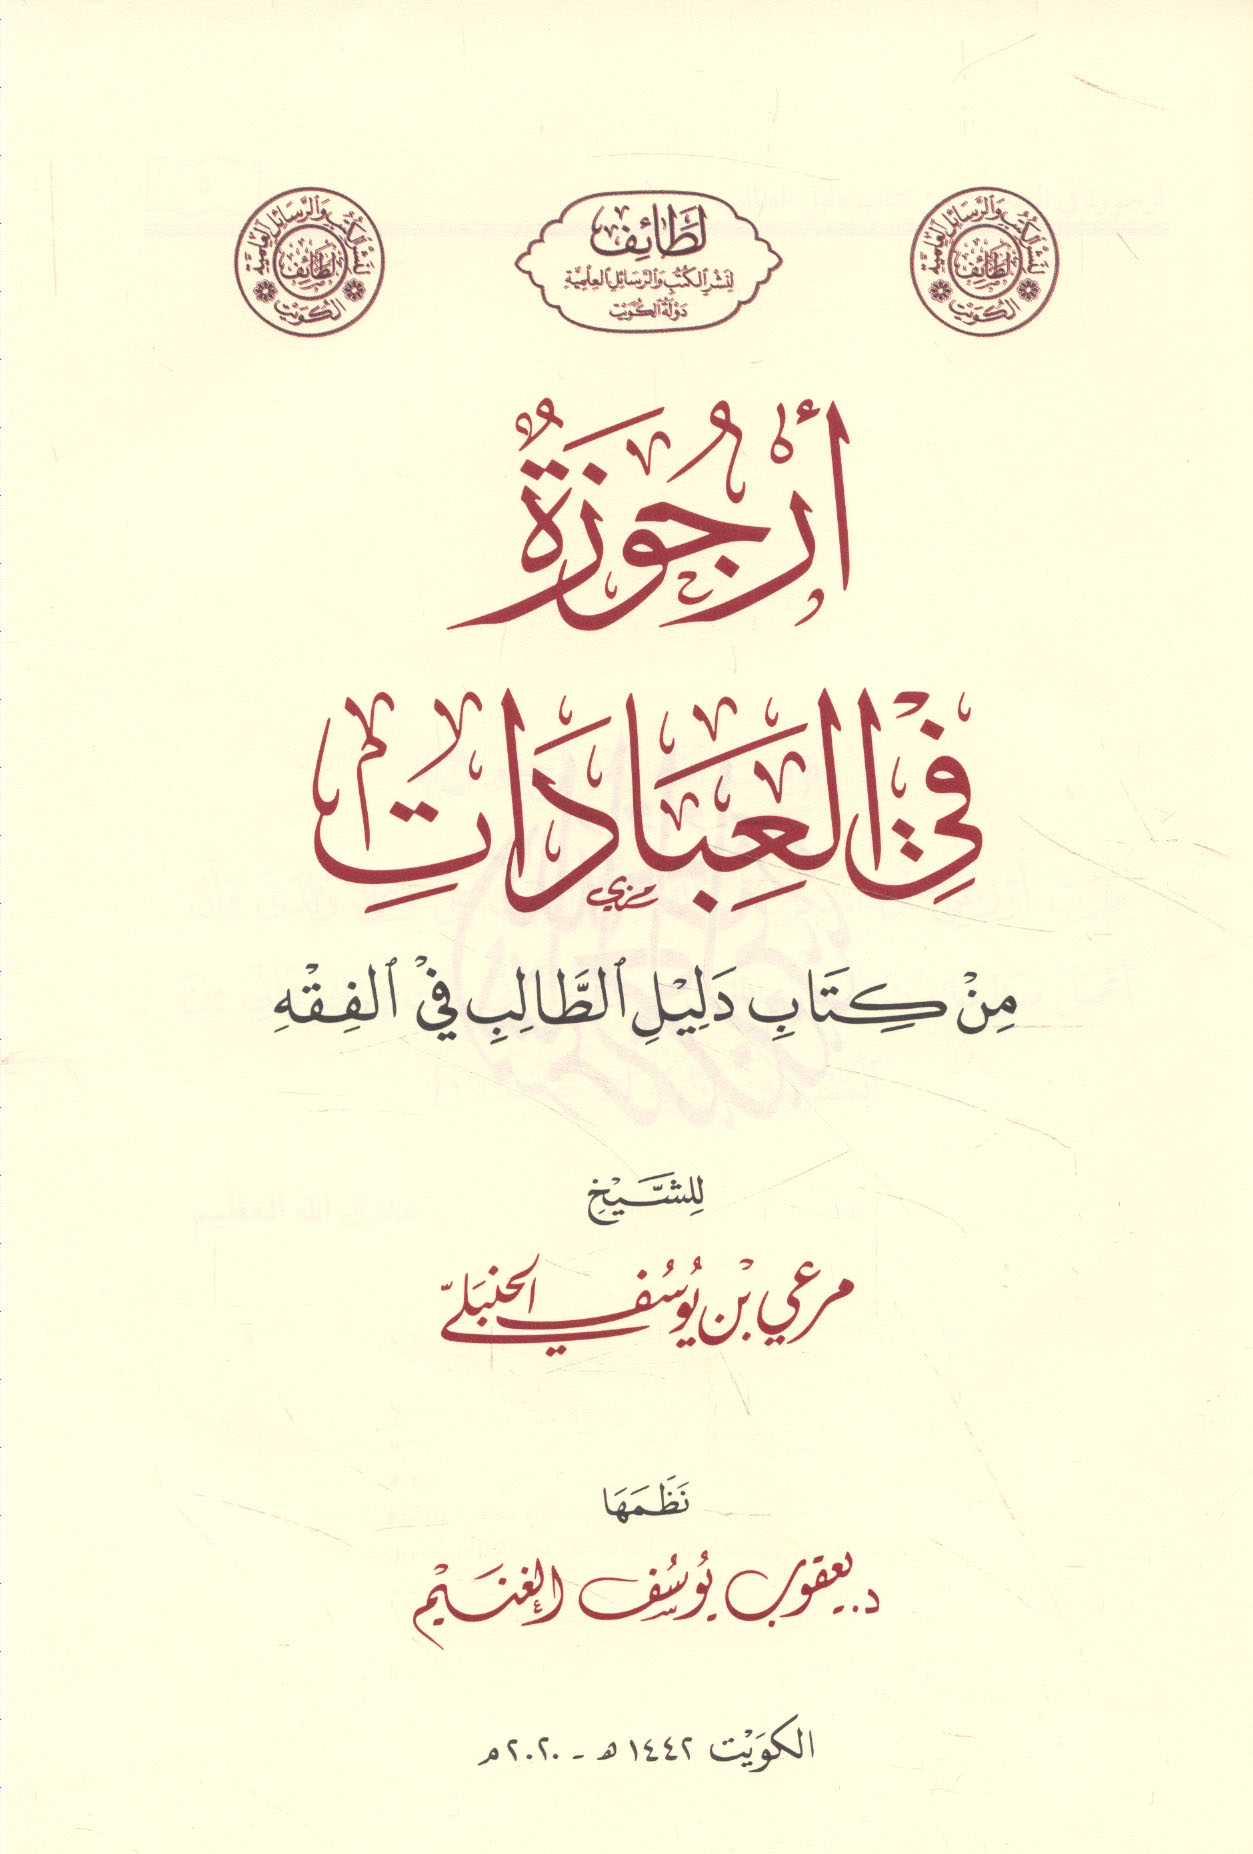 لنشر الكتب والرسائل العلمية
لطائف
الكويت
لَطَائِف
لِنَشْرِ الكُتُبِ وَالرَّسَائِلِ العِلْمِيَّةِ
دَوْلَةُ الكُوَيْت
لنشر الكتب والرسائل العلمية
لطائف
الكويت
أُرْجُوزَةٌ
فِي العِبَادَاتِ
مِنْ كِتَابِ دَلِيْلِ ٱلطَّالِبِ فِيْ ٱلفِقْهِ
لِلشَّيْخِ
مرعي بْن يُوسُف الحنبَليّ
نَظَمَهَا
د. يعقوب يُوسُف الغنَيْم
الكوَيْت ١٤٤٢ هـ - ٢٠٢٠ م